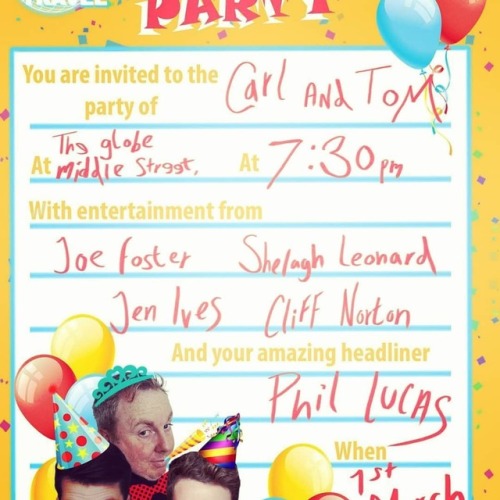 PARTY
You are invited to the
party of Carl AND TOM
The globe
At Middle Street, At 7:30pm
With entertainment from
Joe Foster Shelagh Leonard
Jen Ives Cliff Norton
And your amazing headliner
Phil LUCAS
When
1st